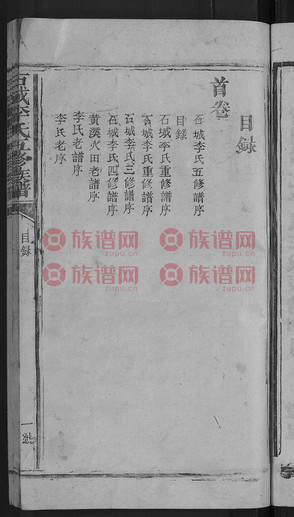 目錄
首卷
石城李氏五修譜序
目錄
石城李氏重修譜序
石城李氏重修譜序
石城李氏三修譜序
石城李氏四修譜序
黃溪火田老譜序
李氏老譜序
李氏老序
石城李氏五修族譜
目錄
一號
族谱网
zupu.cn
族谱网
zupu.cn
族谱网
zupu.cn
族谱网
zupu.cn